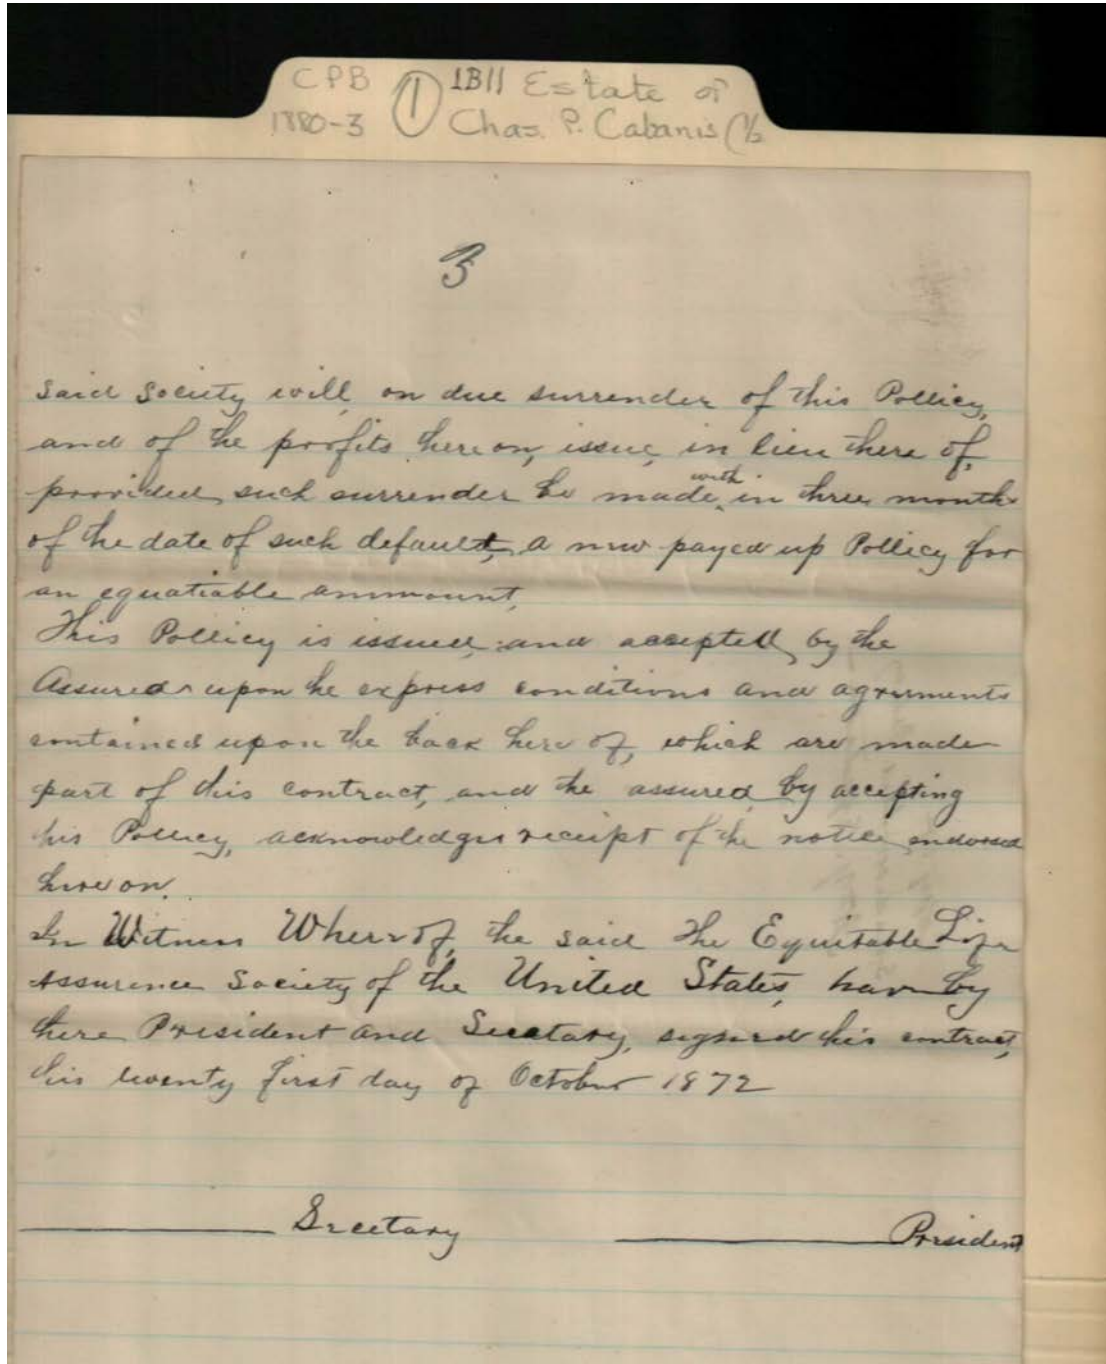 CPB ① 1B11 Estate of
1880-3 Chas. P. Cabanis
3
said Society will, on due surrender of this Pollicy,
and of the profits hereon, issue, in lieu there of,
provided, such surrender be made, with in three month
of the date of such default, a new payed up Pollicy for
an equatiable ammount,
This Pollicy is issued, and accepted, by the
Assured upon he express conditions and agreements
contained upon the back here of, which are made
part of this contract, and the assured, by accepting
his Pollicy, acknowledges receipt of the notice endorsed
hereon.
In Witness Whereof, the said The Equitable Life
Assurence Society of the United States, have by
there President and Secetary, signed his contract,
his twenty first day of October 1872
Secetary President